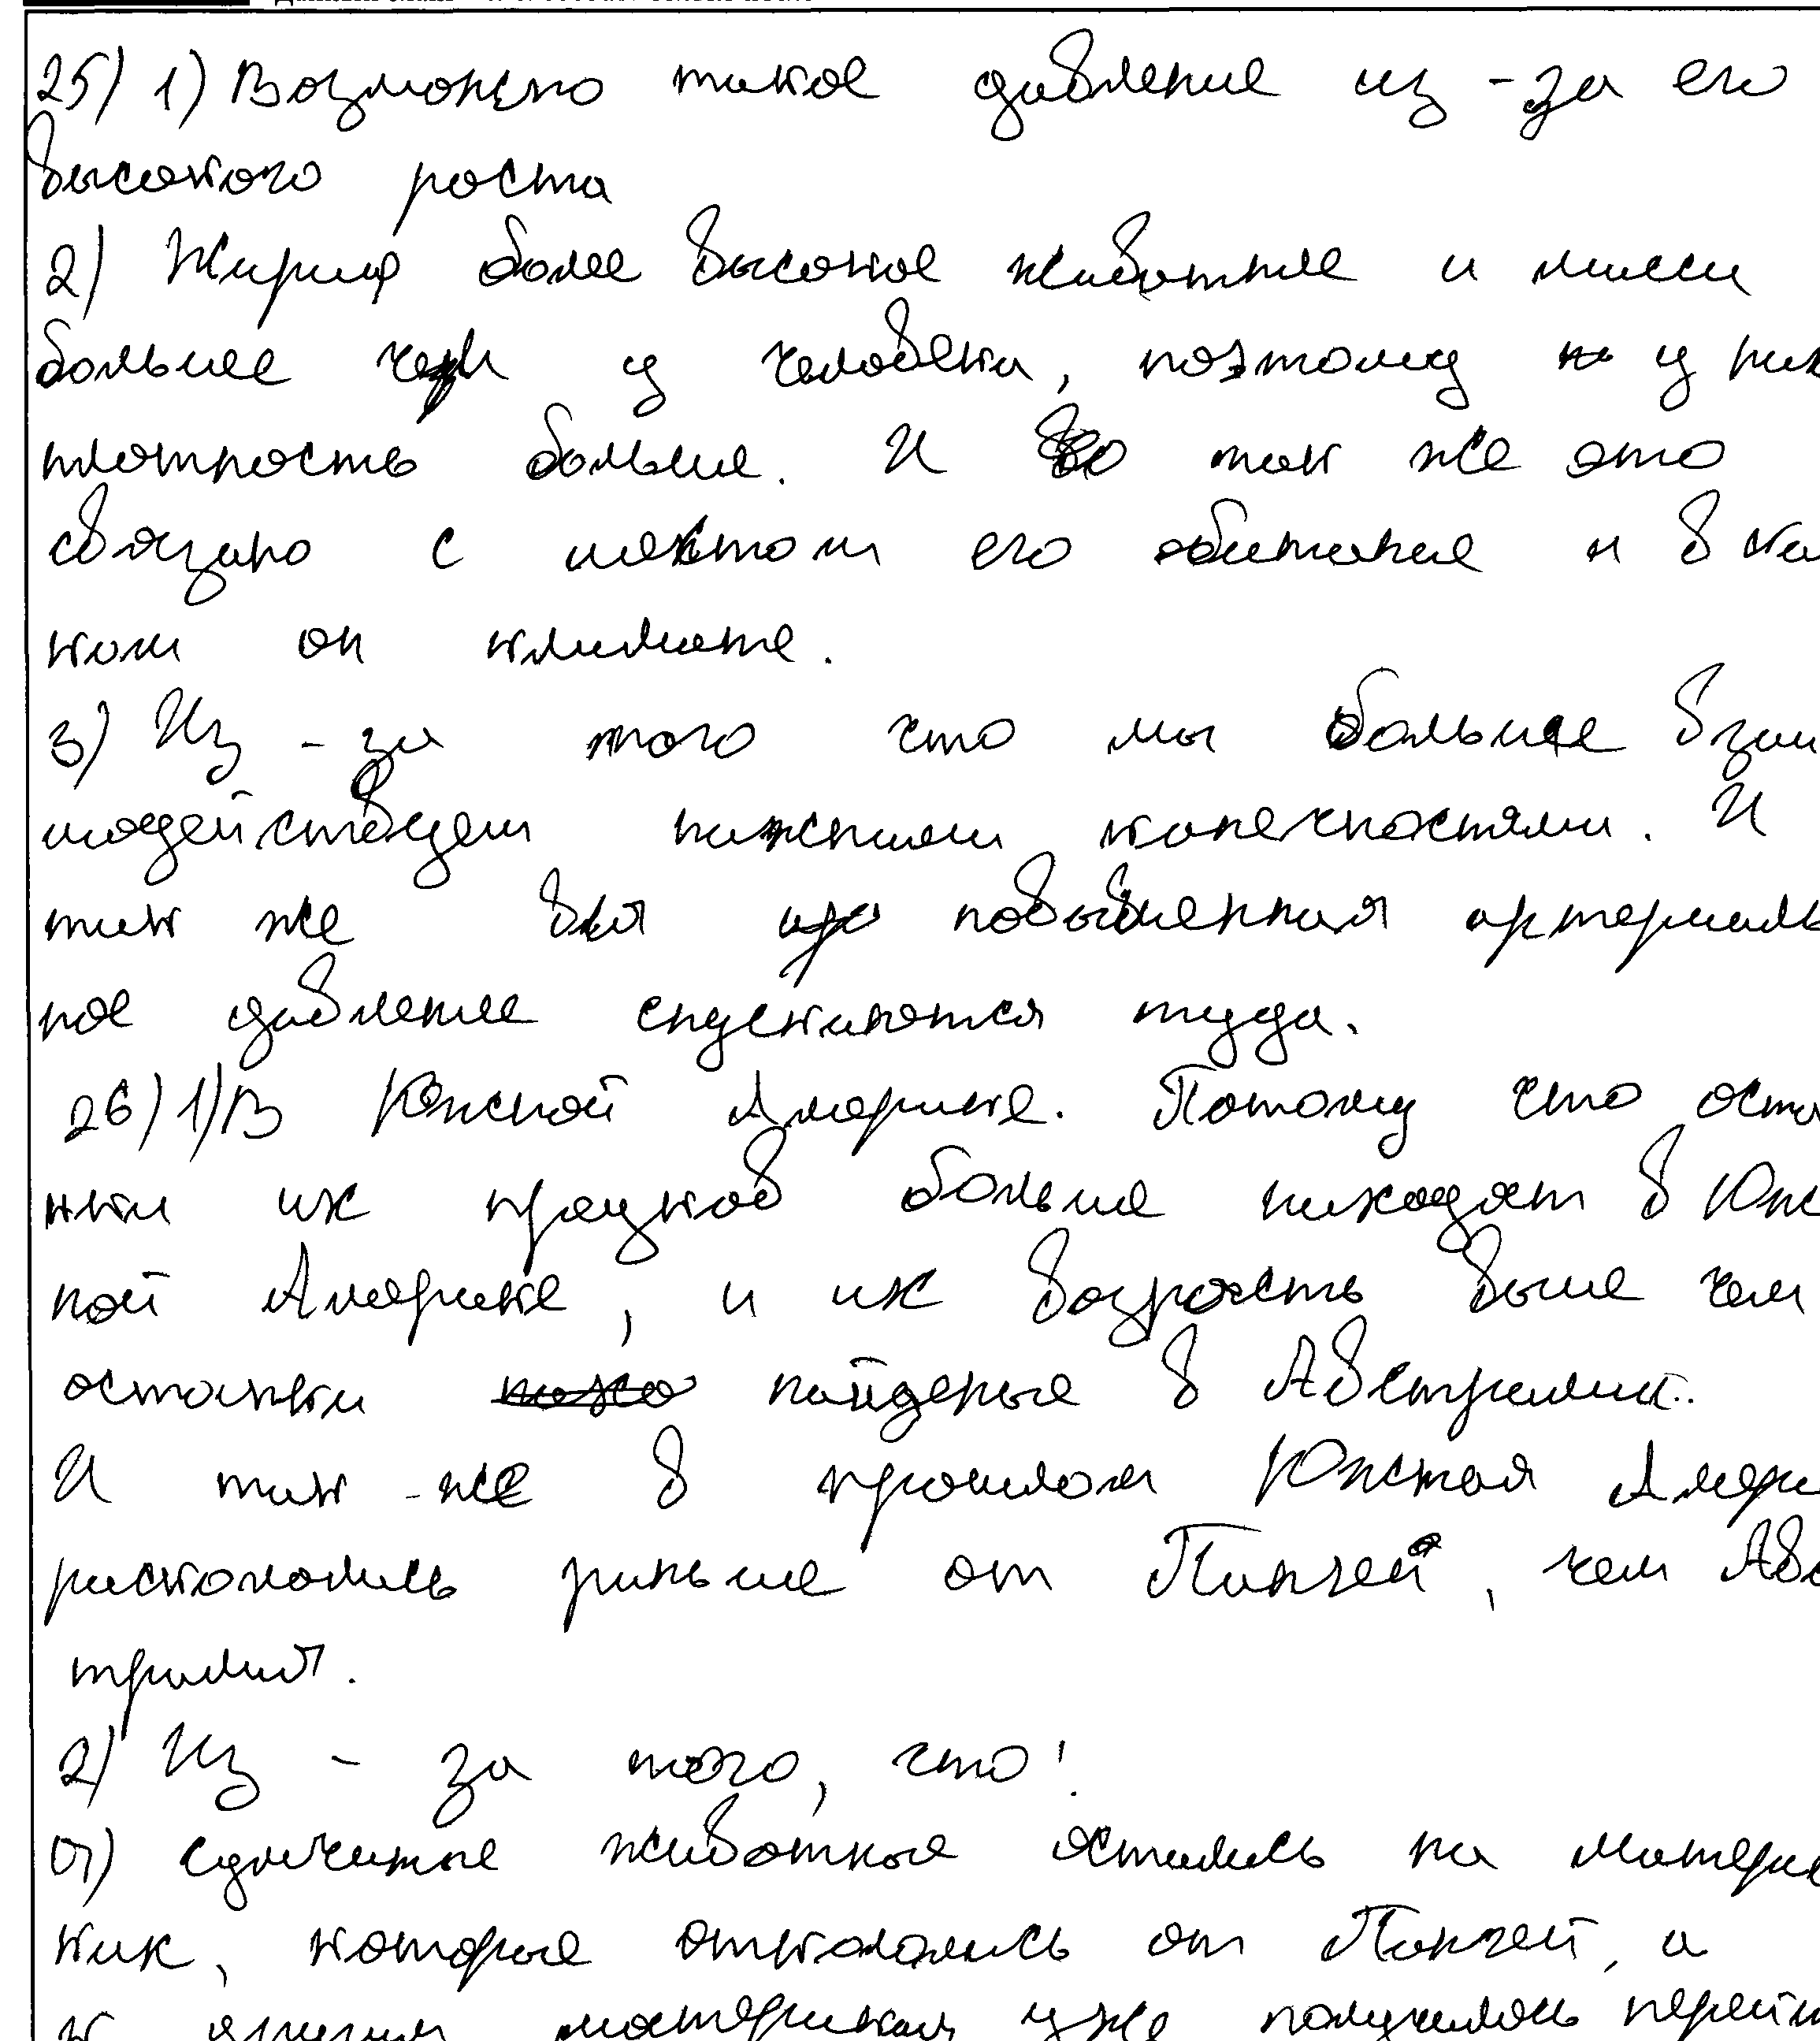 25) 1) Возможно такое давление из-за его
высокого роста
2) Жираф более высокое животные и массы
больше чем у человека, поэтому у них
плотность больше. И так же это
связано с местом его обитание и в ка
ком он климате.
3) Из-за того что мы больше взаи
модействуем нижними конечностями. И
так же вся повышенная артериаль
ное давление спускаются туда.
26) 1) В Южной Америке. Потому что оста
нки их предков больше находят в Юж
ной Америке, и их возрасть выше чем
останки найденые в Австралии.
И так же в прошлом Южная Амери
раскололись раньше от Пангей, чем Авс
тралия.
2) Из-за того, что:
а) сумчатые животные остались на матери
ках, которые откололись от Пангей, а
к другим материкам уже получилось перейти